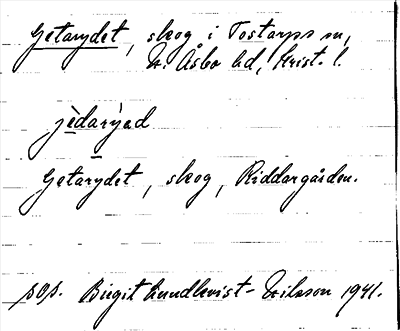 Getarydet, skog i Tostarps sn,
N. Åsbo hd, Krist. l.
jèdarỳed
Getarydet, skog, Riddargården.
pop. Birgit Lundkvist-Nilsson 1941.